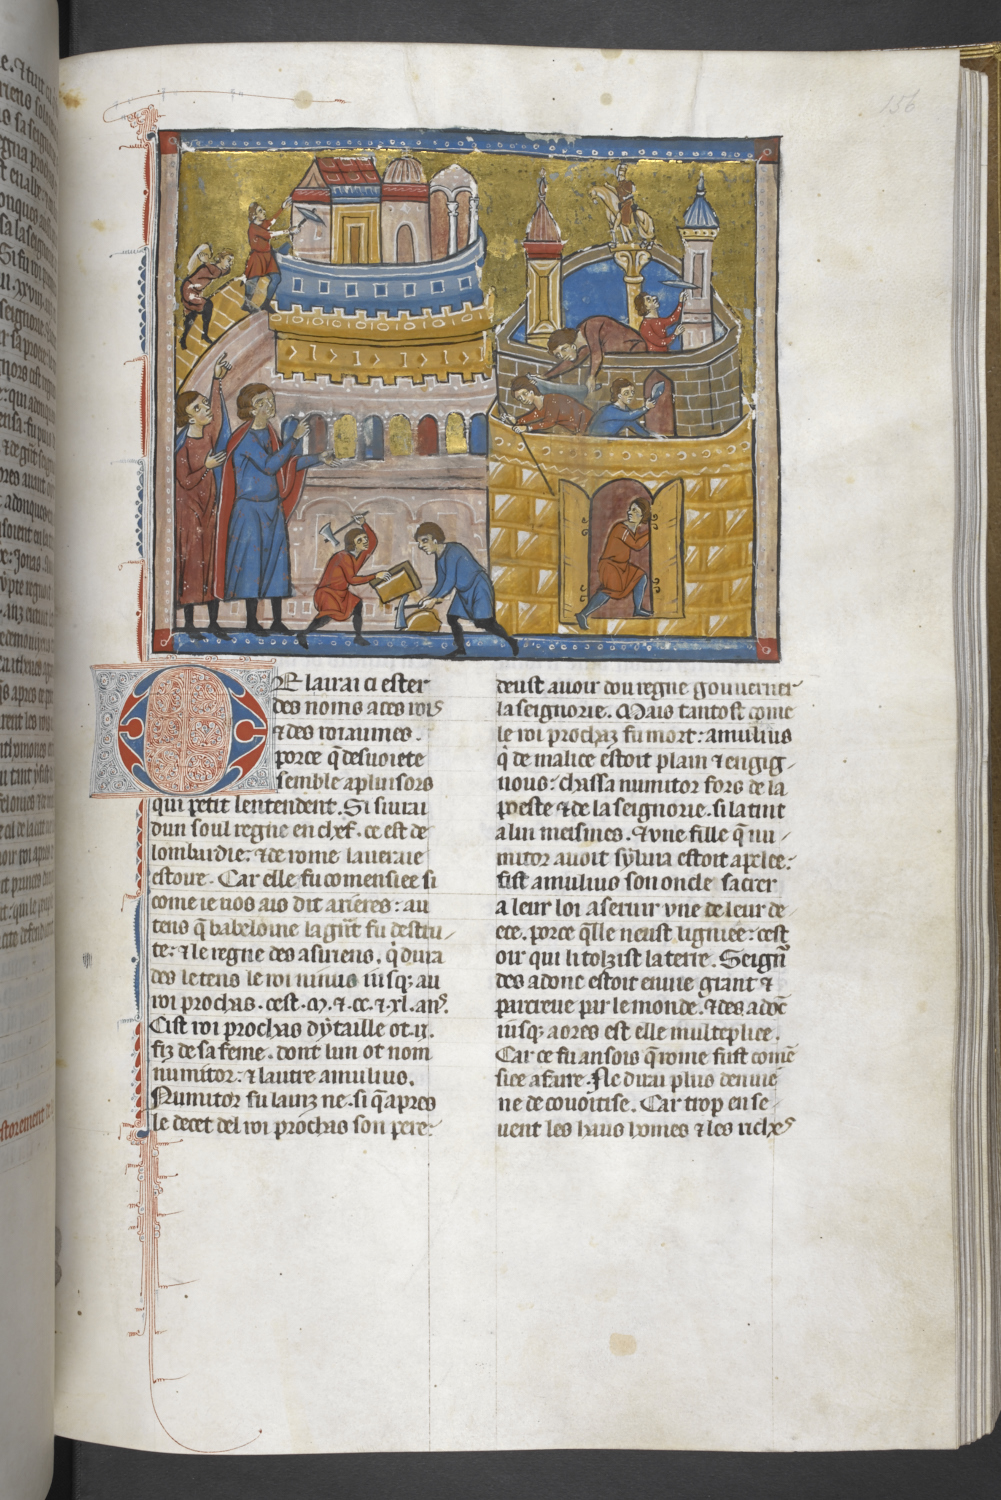 156
OE lairai ci ester
des noms a ces rois
⁊ des roiaumes.
por ce q̃ desuoiete
semble a pluisors
qui petit lentendent. Si siurai
dun soul regne en chef. ce est de
lombardie: ⁊ de rome la ueraie
estoire. Car elle fu comensiee si
come ie uos ais dit arieres: au
tens q̃ babeloine la g̃nt fu destru
te: ⁊ le regne des asiriens. q̇ dura
des le tens le roi ninus iusq; au
roi prochas. cest .M. ⁊ .cc. ⁊ .xl. ans.
Cist roi prochas dẏtaille ot .ij.
fiz de sa feme. dont lun ot nom
numitor: ⁊ lautre amulius.
Numitor fu lainz ne. si q̃ apres
le decet del roi prochas son pere:
deust auoir dou regne gouuerner
la seignorie. Mais tantost come
le roi prochaz fu mort: amulius
q̇ de malice estoit plain ⁊ engig
nous: chassa numitor fors de la
poeste ⁊ de la seignorie. si la tint
a lui meismes. ⁊ vne fille q̃ nu
mitor auoit sẏluia estoit apelee:
fist amulius son oncle sacrer
a leur loi a seruir vne de leur de
ece. por ce q̃lle neust ligniee: cest
oir qui li tolzist la terre. Seign̄
des adonc estoit enuie grant ⁊
parcreue par le monde. ⁊ des adōc
iusq; a ores est elle multeplice.
Car ce fu ansois q̃ rome fust comē
siee a faire. Ne dirai plus denuie
ne de couoitise. Car trop en se
uent les haus homes ⁊ les riches